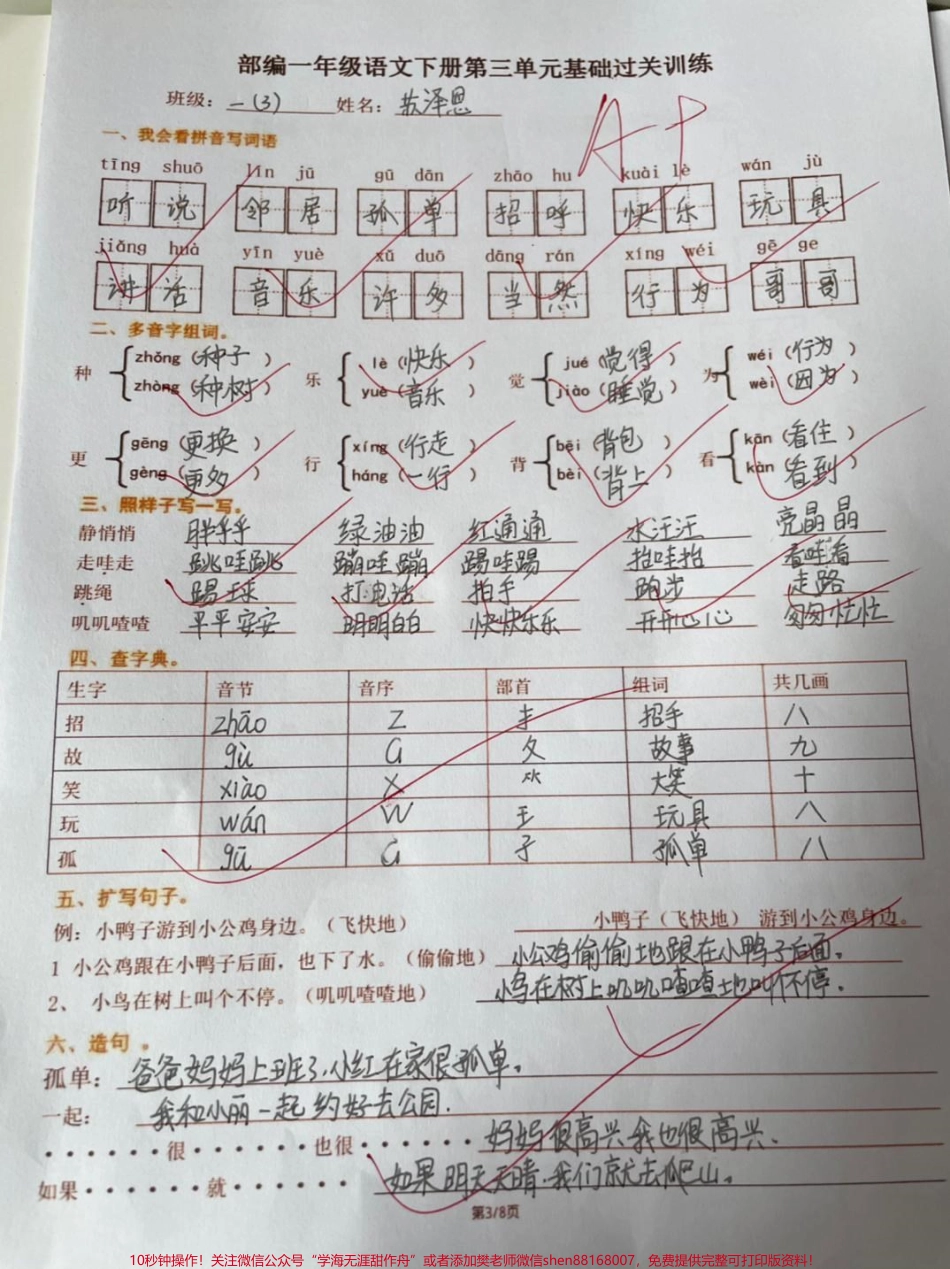 部编一年级语文下册第三单元基础过关训练
班级：一（3） 姓名：苏泽恩
A+
一、我会看拼音写词语
tīng shuō lín jū gū dān zhāo hu kuài lè wán jù
听说 邻居 孤单 招呼 快乐 玩具
jiǎng huà yīn yuè xǔ duō dāng rán xíng wéi gē ge
讲话 音乐 许多 当然 行为 哥哥
二、多音字组词。
种 zhǒng（种子） zhòng（种树） 乐 lè（快乐） yuè（音乐） 觉 jué（觉得） jiào（睡觉） 为 wéi（行为） wèi（因为）
更 gēng（更换） gèng（更多） 行 xíng（行走） háng（一行） 背 bēi（背包） bèi（背上） 看 kān（看住） kàn（看到）
三、照样子写一写。
静悄悄 胖乎乎 绿油油 红通通 水汪汪 亮晶晶
走哇走 跳哇跳 蹦哇蹦 踢哇踢 抬哇抬 看哇看
跳绳 踢球 打电话 拍手 跑步 走路
叽叽喳喳 平平安安 明明白白 快快乐乐 开开心心 匆匆忙忙
四、查字典。
生字 音节 音序 部首 组词 共几画
招 zhāo Z 扌 招手 八
故 gù G 攵 故事 九
笑 xiào X ⺮ 大笑 十
玩 wán W 王 玩具 八
孤 gū G 子 孤单 八
五、扩写句子。
例：小鸭子游到小公鸡身边。（飞快地） 小鸭子（飞快地） 游到小公鸡身边。
1 小公鸡跟在小鸭子后面，也下了水。（偷偷地） 小公鸡偷偷地跟在小鸭子后面。
2、 小鸟在树上叫个不停。（叽叽喳喳地） 小鸟在树上叽叽喳喳地叫个不停。
六、造句 。
孤单：爸爸妈妈上班了，小红在家很孤单。
一起： 我和小丽一起约好去公园.
······很······也很······ 妈妈很高兴，我也很高兴.
如果······就······ 如果明天天晴，我们就去爬山。
第3/8页
10秒钟操作！关注微信公众号“学海无涯甜作舟”或者添加樊老师微信shen88168007，免费提供完整可打印版资料！